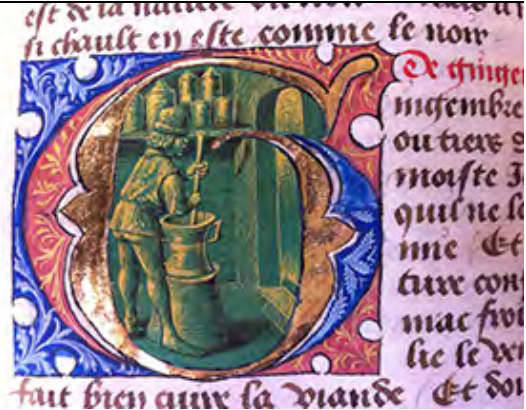 est de la nature
si chault en este comme le noir
De gingem
ingembre
ou tiers
moiste
quil ne le
me Et
ture con
mac froi
lie le ven
fait bien cuire la viande Et doi